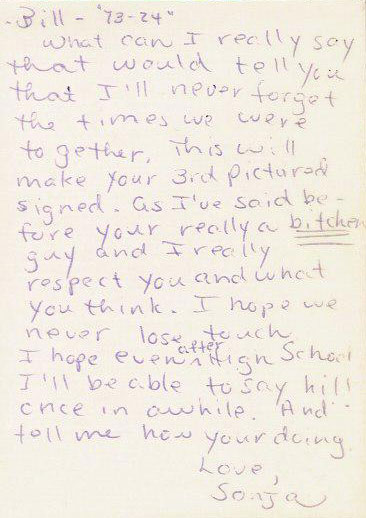 Bill - "73-24"
What can I really say
that would tell you
that I'll never forget
the times we were
together. This will
make your 3rd pictured
signed. As I've said be-
fore your really a bitchen
guy and I really
respect you and what
you think. I hope we
never lose touch.
I hope even after High School
I'll be able to say hi!!
once in awhile. And
tell me how your doing.
Love,
Sonja